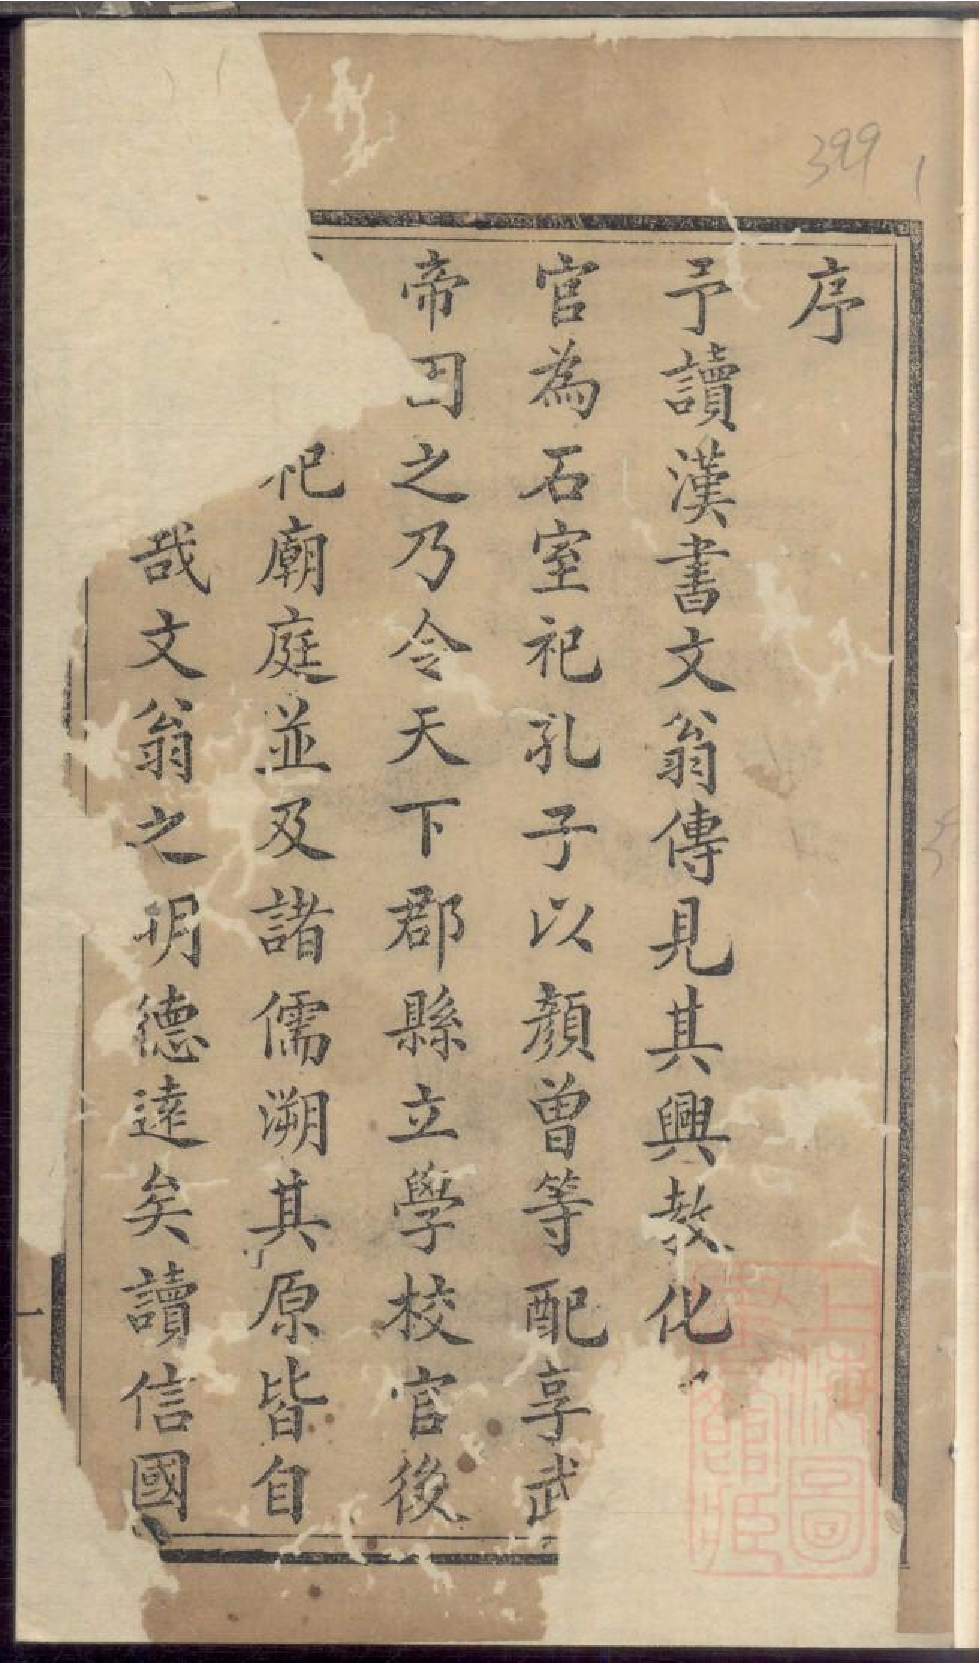 序
予讀漢書文翁傳見其興教化
官為石室祀孔子以顏曾等配享武
帝因之乃令天下郡縣立學校官後
祀廟庭並及諸儒溯其原皆自
哉文翁之明德達矣讀信國
一
399
上海圖書館藏